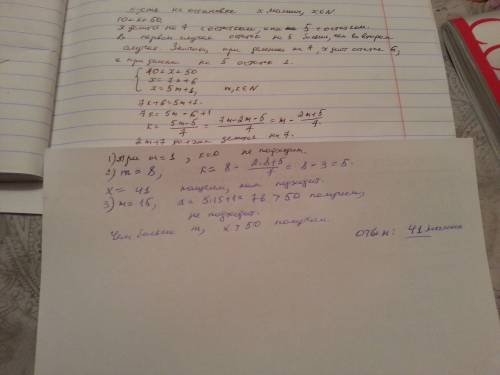 Пусть на остановке x машин, x∈N
10<x<50.
x делит на 7 с остатком, и на 5 с остатком.
В первом случае остаток на 5 больше, чем во втором
случае. Значит, при делении на 7, x даёт остаток 6,
а при делении на 5 остаток 1.
10<x<50
x=7k+6
x=5m+1, m,k∈N
7k+6=5m+1.
7k=5m-6+1
k=(5m-5)/7=(7m-2m-5)/7=m-(2m+5)/7.
делится на 7.
1) При m=1, k=0 не подходит.
2) m=8, k=8-(2·8+5)/7=8-3=5.
x=41 нам подходит.
3) m=15, x=5·15+1=76>50
не подходит.
Чем больше m, x>50
Ответ: 41